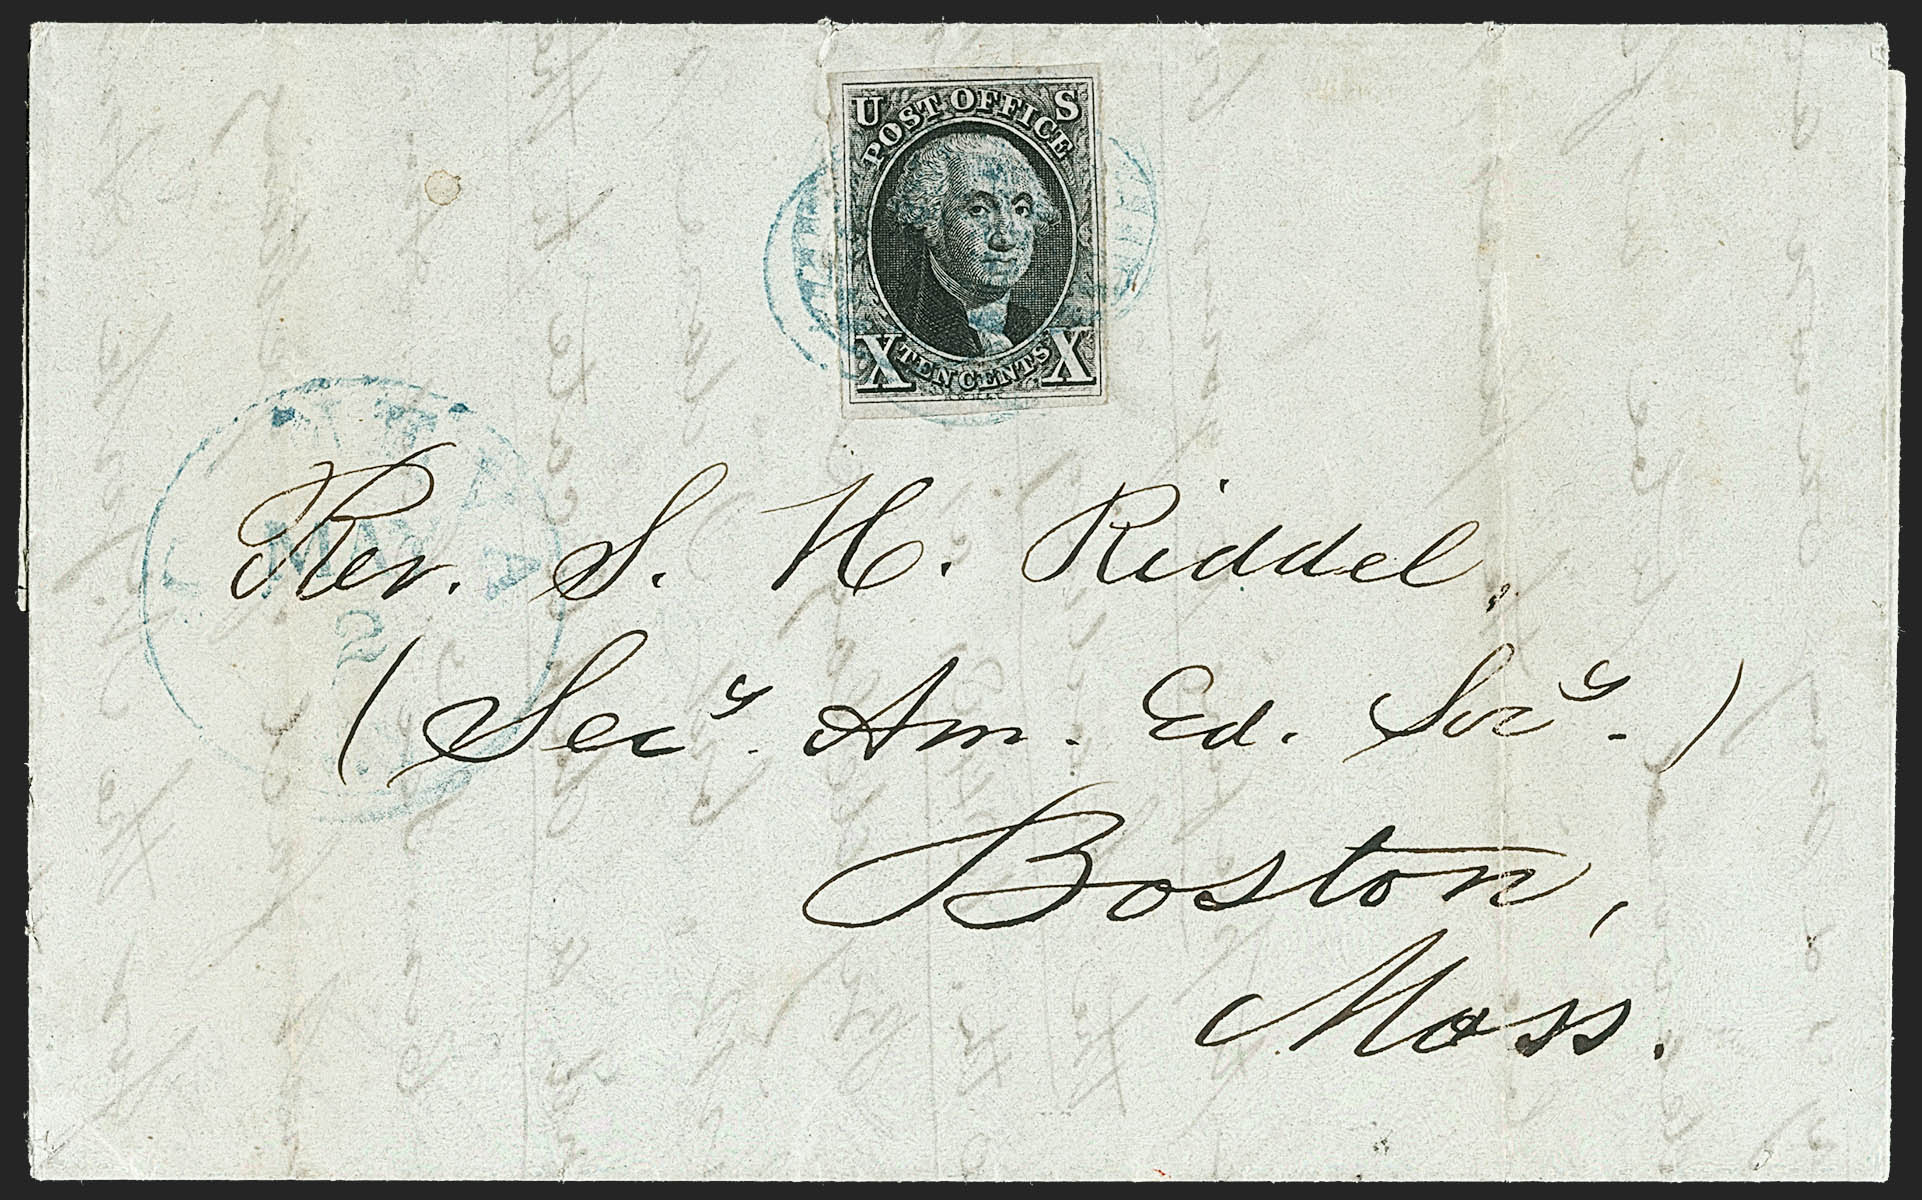 U S
POST OFFICE
X TEN CENTS X
MAY
2
Rev. S. H. Riddel,
(Secy. Am. Ed. Socy.)
Boston,
Mass.